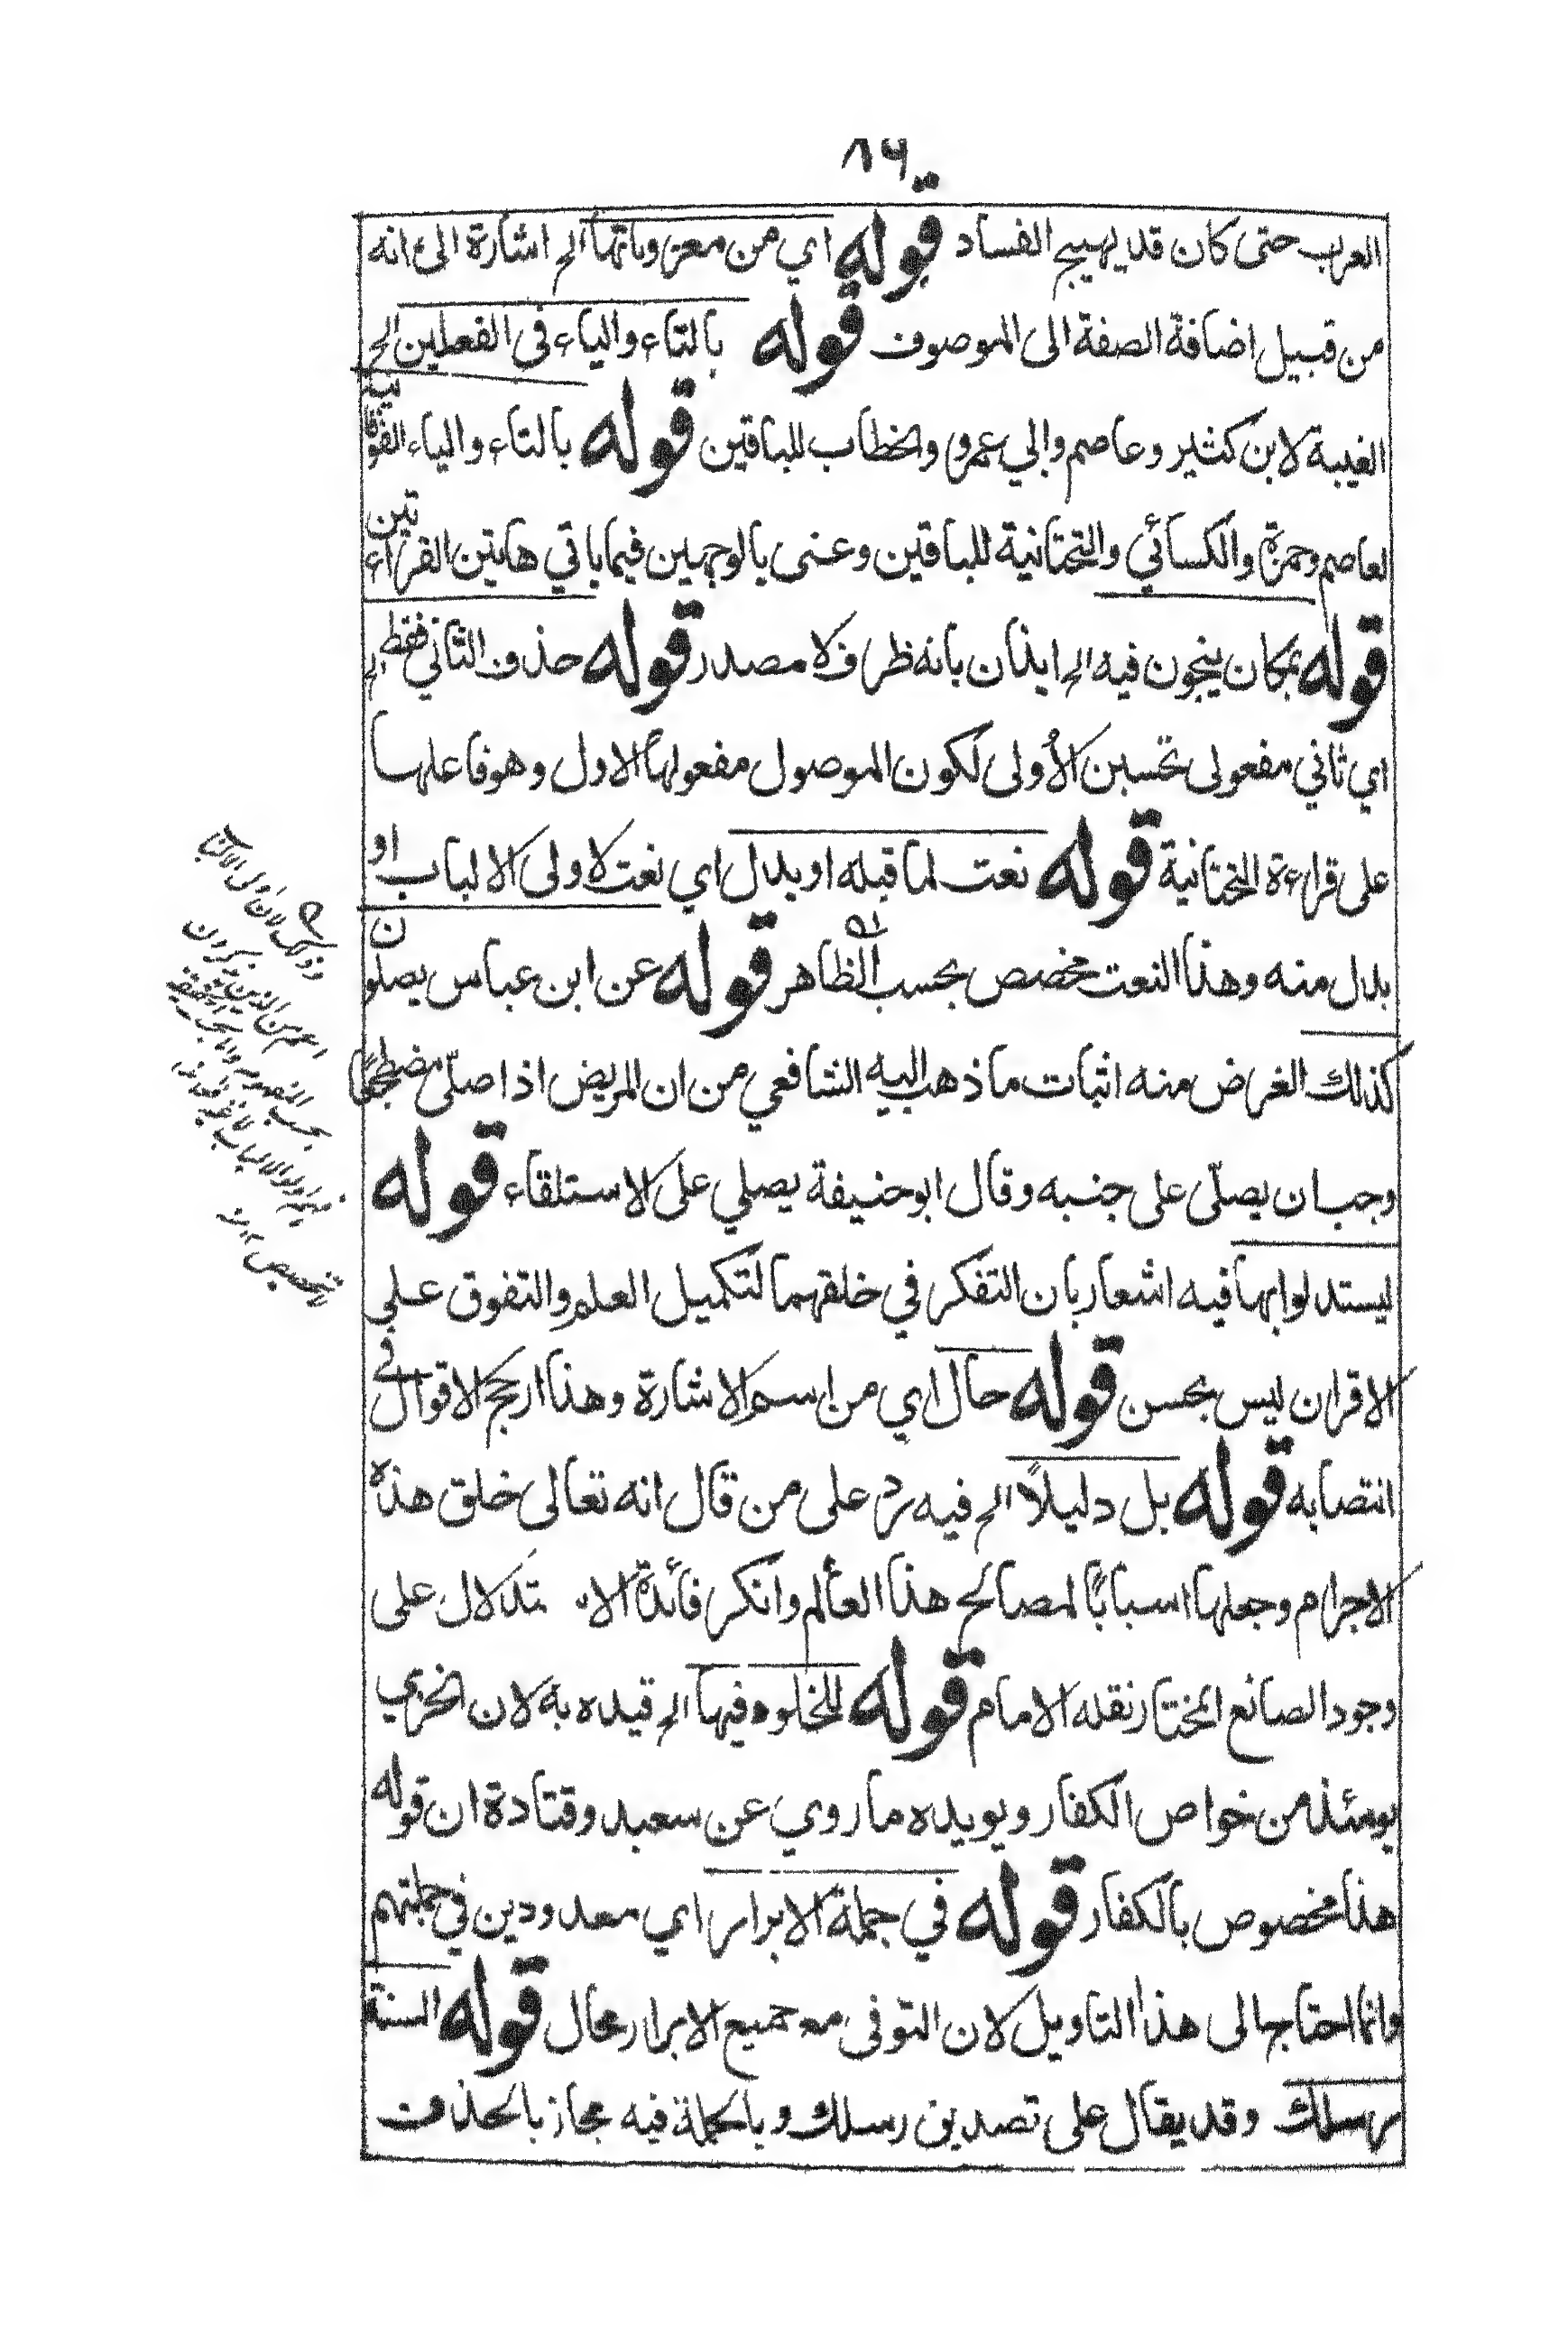 ٨٦
العرب حتى كان قد يهيج الفساد قوله اي من معزوماتها الخ اشارة الى انه
من قبيل اضافة الصفة الى الموصوف قوله بالتاء والياء في الفعلين الخ
الغيبة لابن كثير وعاصم وابي عمرو والخطاب للباقين قوله بالتاء والياء الفوقانية
لعاصم وحمزة والكسائي والتحتانية للباقين وعنى بالوجهين فيما ياتي هايتن القراءتين
قوله بمكان ينجون فيه الخ ايذان بانه ظرف لا مصدر قوله حذف الثاني فقط الخ
اي ثاني مفعولي تحسبن الأولى لكون الموصول مفعولهاً الاول وهو فاعلها
على قراءة التحتانية قوله نعت لما قبله او بدل اي نعت لاولى الالباب او
بدل منه وهذا النعت مخصص بحسب الظاهر قوله عن ابن عباس يصلون
كذلك الغرض منه اثبات ما ذهب اليه الشافعي من ان المريض اذا صلّى مضطجعًا
وجب ان يصلّى على جنبه وقال ابو حنيفة يصلي على الاستلقاء قوله
ليستدلوا بها فيه اشعار بان التفكر في خلقهما لتكميل العلم والتفوق على
الاقران ليس بحسن قوله حال اي من اسم الاشارة وهذا ارجح الاقوال في
انتصابه قوله بل دليلاً الخ فيه رد على من قال انه تعالى خلق هذه
الاجرام وجعلها اسباباً لمصالح هذا العالم وانكر فائدة الاستدلال على
وجود الصانع المختار نقله الامام قوله للخلود فيها الخ قيده به لان الخزي
يومئذ من خواص الكفار ويويده ما روي عن سعيد وقتادة ان قوله
هذا مخصوص بالكفار قوله في جملة الابرار اي معدودين في جملتهم
وانما احتاج الى هذا التاويل لان التوفى مع جميع الابرار محال قوله السنة
رسلك وقد يقال على تصديق رسلك وبالجملة فيه مجاز بالحذف